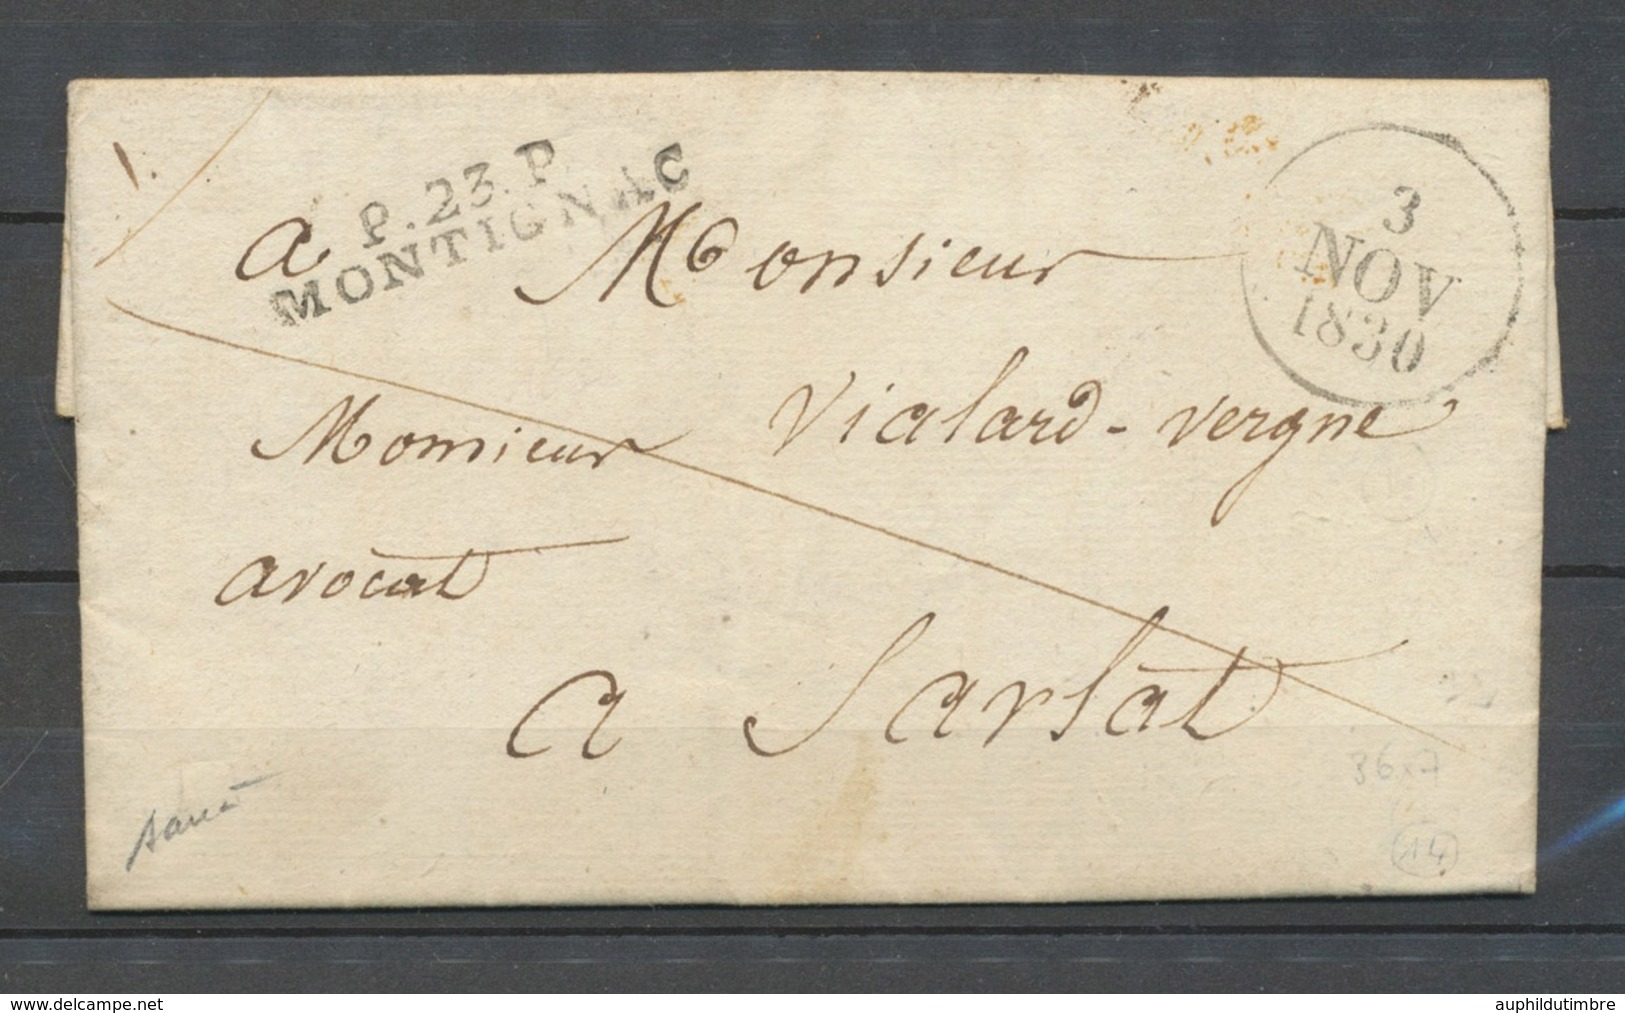 P. 23. P.
MONTIGNAC
3
NOV
1830
a Monsieur
Monsieur Vialard-vergne
avocat
a Sarlat
36x7
14
www.delcampe.net
auphildutimbre